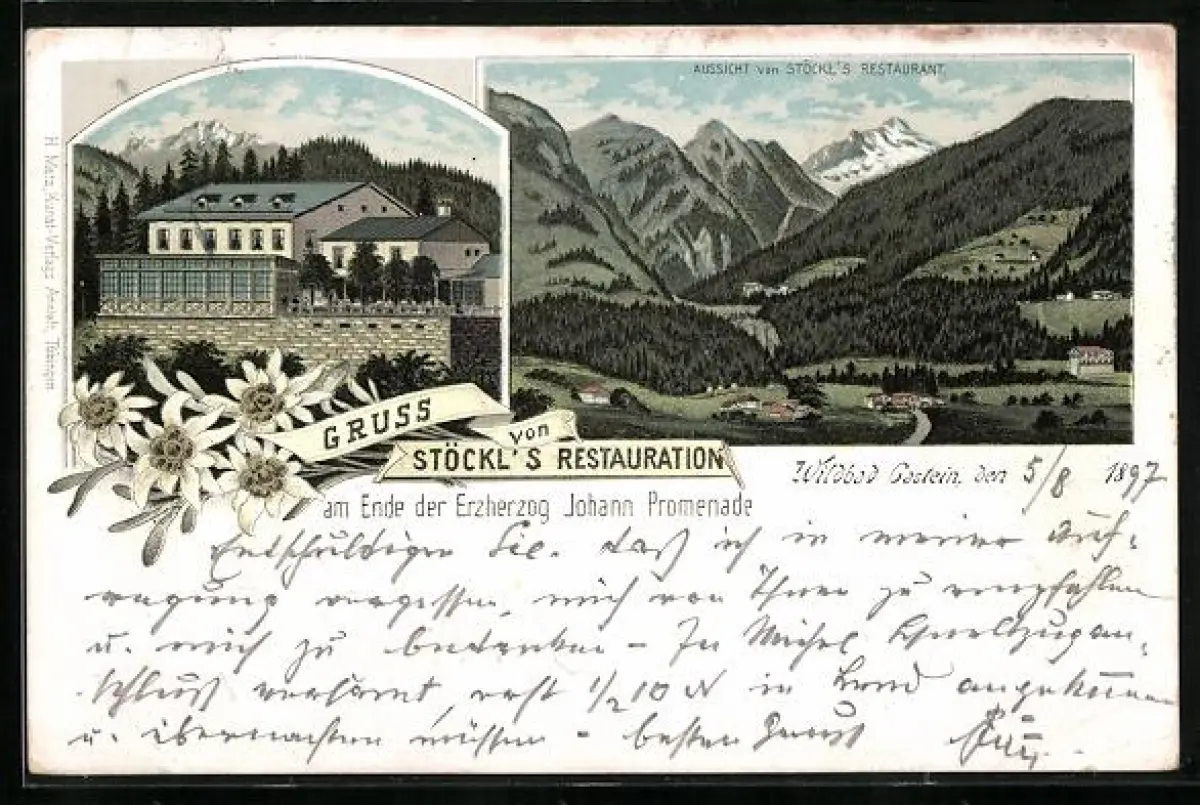 AUSSICHT von STÖCKL'S RESTAURANT.
H. Metz, Kunst-Verlags Anstalt, Tübingen
GRUSS
von
STÖCKL'S RESTAURATION
am Ende der Erzherzog Johann Promenade
Wildbad Gastein, den 5/8 1897
Entschuldigen Sie, daß ich in meiner Auf-
regung vergessen, mich von Ihnen zu empfehlen
u. mich zu bedanken – In Michel Schnellzugan-
schluß versäumt, erst 1/2 10 N in Lend angekommen
u. übernachten müssen – besten Gruß